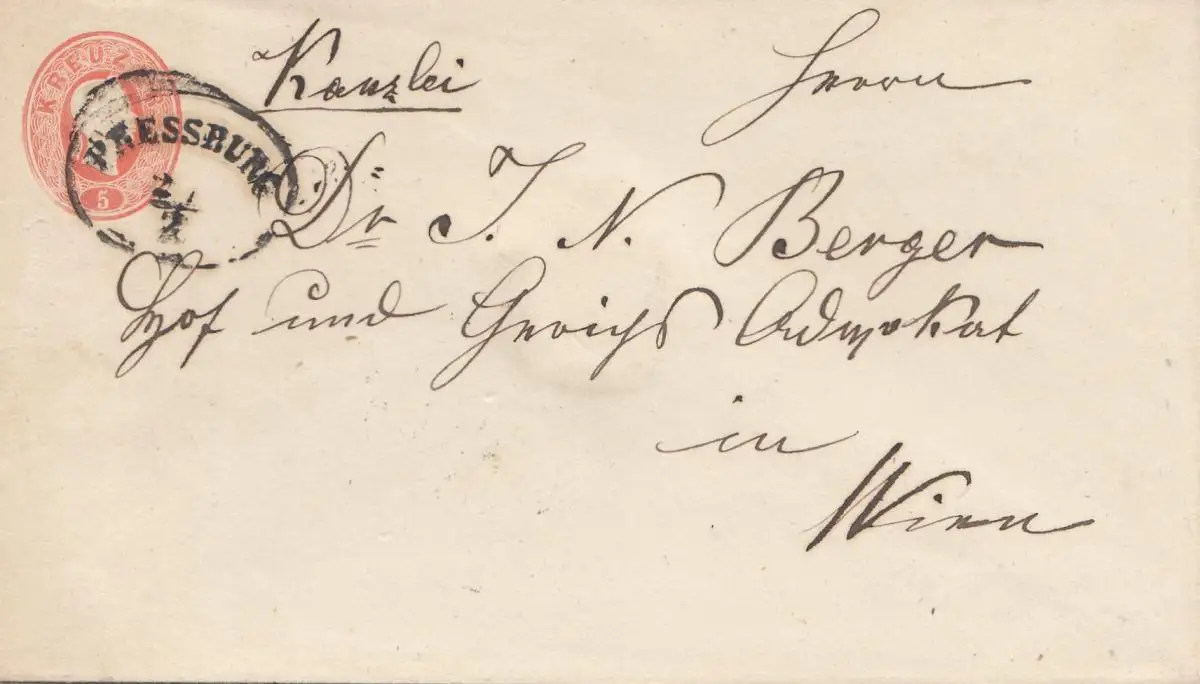 KREUZER
5
PRESSBURG
Kanzlei
Herrn
Dr J. N. Berger
Hof und Gerichts Advokat
in
Wien